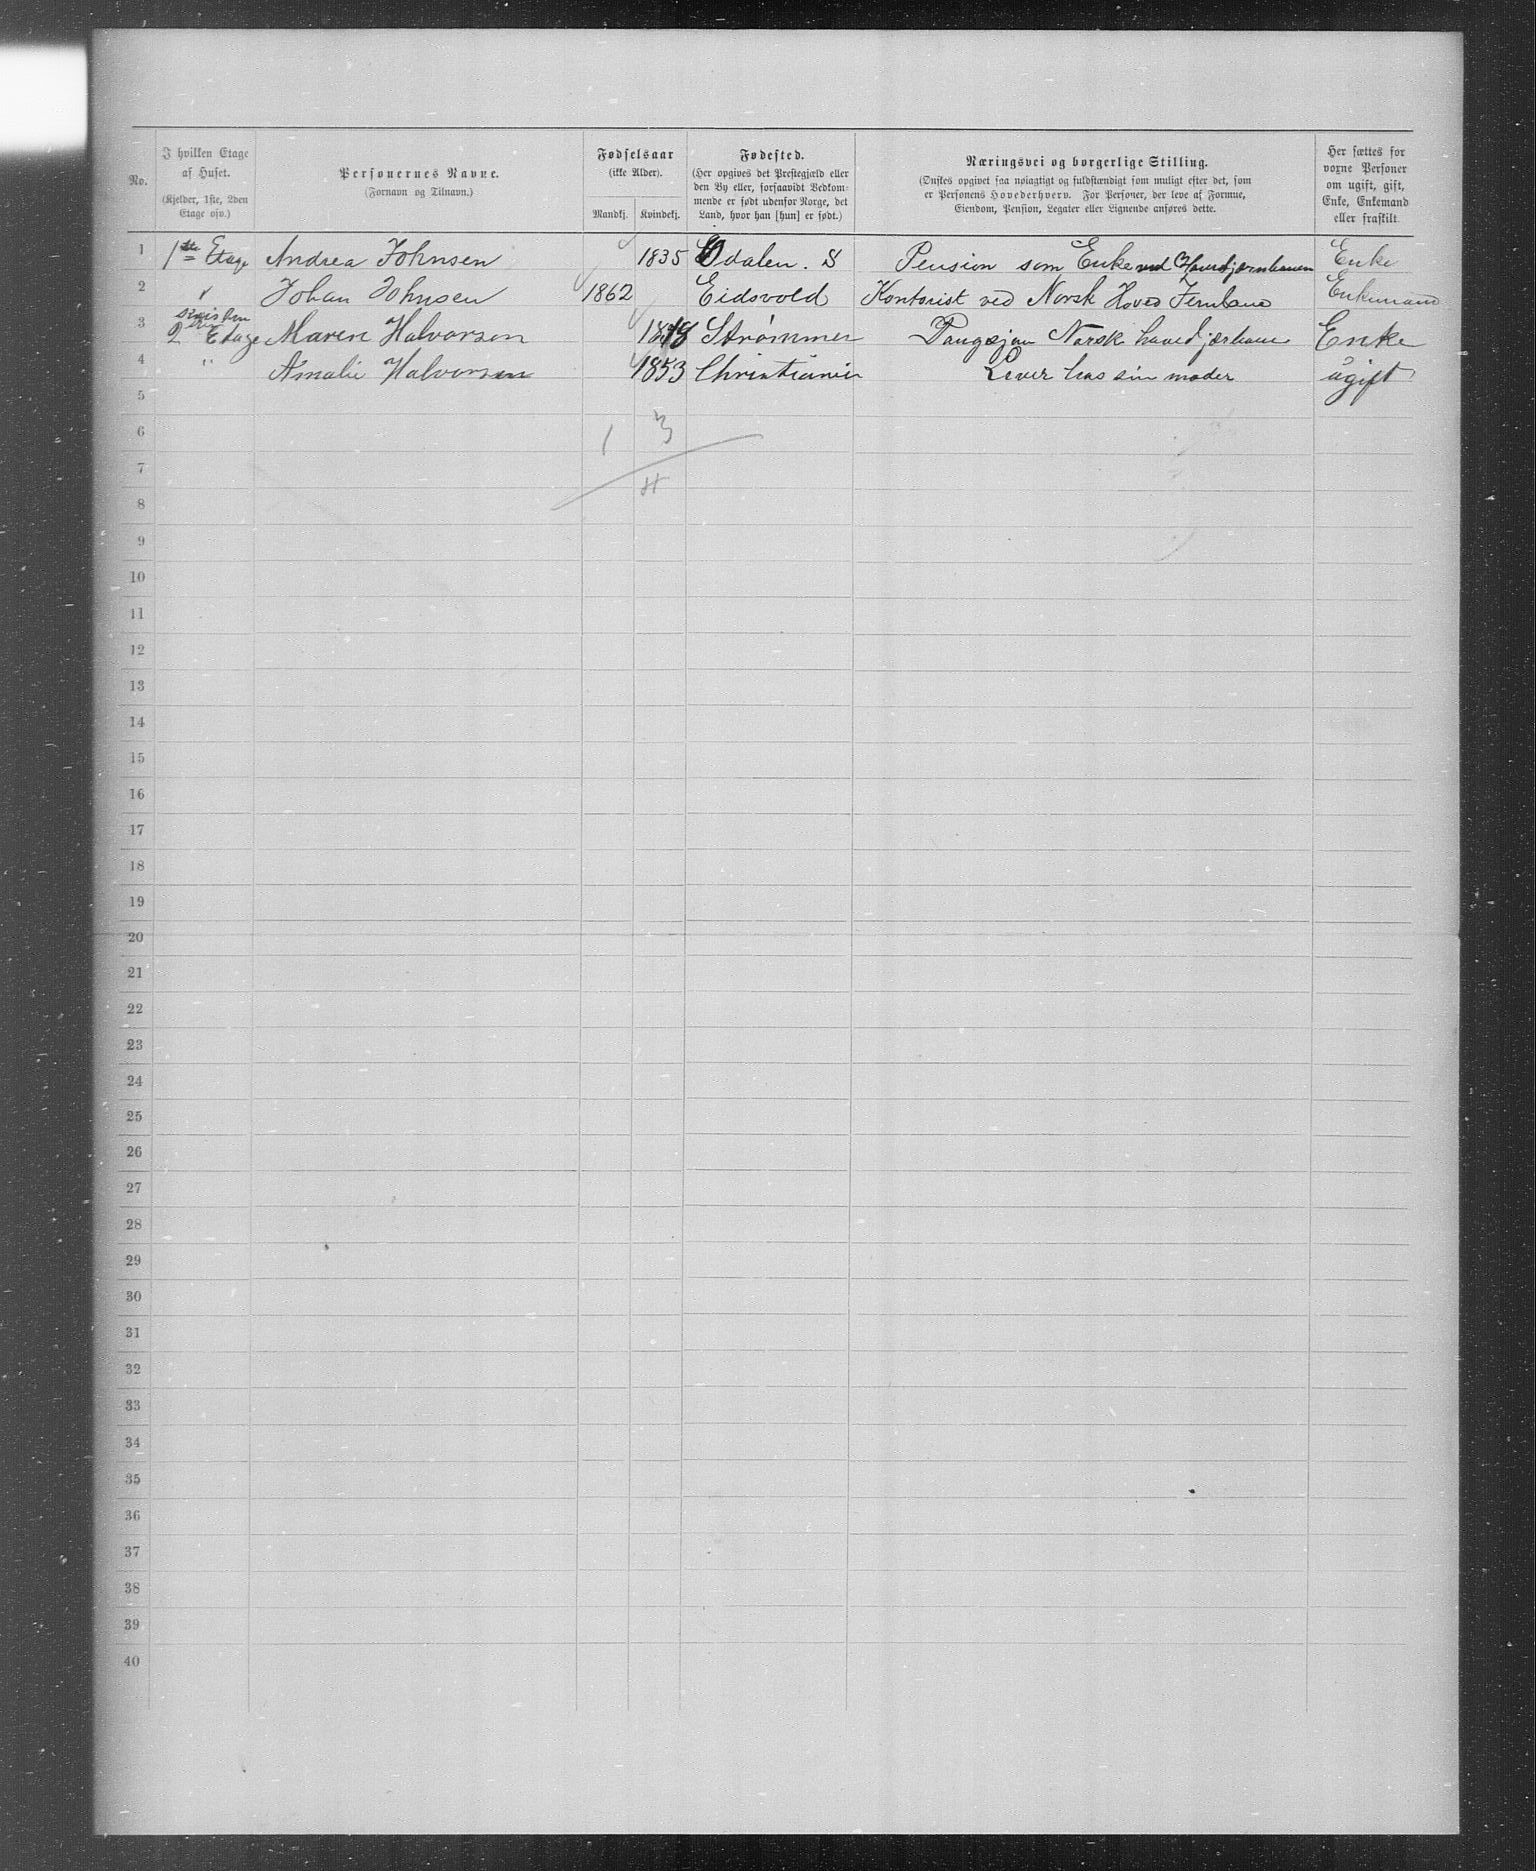 No.
I hvilken Etage af Huset.
(Kjelder, 1ste, 2den Etage osv.)
Personernes Navne.
(Fornavn og Tilnavn.)
Fødselsaar
(ikke Alder).
Mandkj. Kvindekj.
Fødested.
(Her opgives det Prestegjæld eller
den By eller, forsaavidt Vedkom-
mende er født udenfor Norge, det
Land, hvor han [hun] er født.)
Næringsvei og borgerlige Stilling.
(Ønskes opgivet saa nøiagtigt og fuldstændigt som muligt efter det, som
er Personens Hovederhverv. For Personer, der leve af Formue,
Eiendom, Pension, Legater eller Lignende anføres dette.
Her sættes for
voxne Personer
om ugift, gift,
Enke, Enkemand
eller fraskilt.
1 1ste Etage Andrea Johnsen 1835 Odalen. S Pension som Enke ved Hovedjernbanen Enke
2 " Johan Johnsen 1862 Eidsvold Kontorist ved Norsk Hoved Jernbane Enkemand
3 2 Etage Maren Halvorsen Strømmen Pangsjon Norsk hovedjærbane Enke
4 " Amalie Halvorsen 1853 Christiania Lever hos sin moder ugift
5
6 1 3
7
8 4
9
10
11
12
13
14
15
16
17
18
19
20
21
22
23
24
25
26
27
28
29
30
31
32
33
34
35
36
37
38
39
40